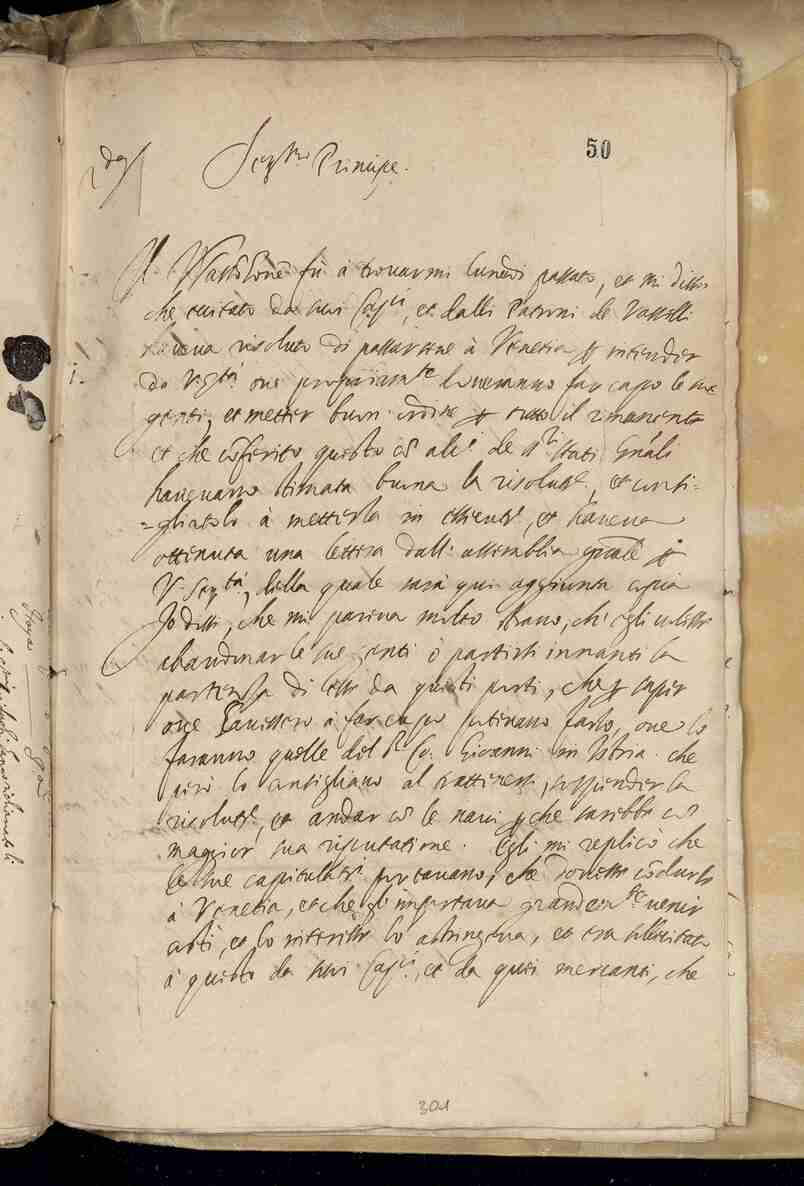 50
Ser.mo Principe.
fù à trovarmi lunedì passato, et mi disse
che eccitato da suoi Cap.ni, et dalli Patroni de Vasselli
haveva risoluto di passarsene à Venetia per intender
da V. Ser.tà ove propriam.te doveranno far capo le sue
genti, et metter buon ordine per tutto il rimanente
et che conferito questo con alc.i de S.ri Stati Gn̄ali
havevano stimata buona la risolut.ne, et consi=
=gliatolo à metterla in essecut.ne, et haveva
ottenuta una lettera dall' assemblea gn̄ale per
V. Ser.tà, della quale sarà qui aggiunta copia
Io dissi, che mi pareva molto strano, ch' egli volesse
abandonar le sue genti ò partirsi innanti la
partenza di esse da questi porti, che per saper
ove havessero à far capo potevano farlo, ove lo
faranno quelle del S.r Co: Giovanni in Istria. che
però lo consigliavo al trattenersi, sospender la
risolut.ne, et andar con le navi per che sarebbe con
maggior sua riputatione. Egli mi replicò che
le sue capitulat.ni portavano, che dovesse condurle
à Venetia, et che gli importava grandem.te venir
costì, et lo interesse lo astringeva, et era sollecitato
à questo da suoi Cap.ni, et da questi mercanti, che
301